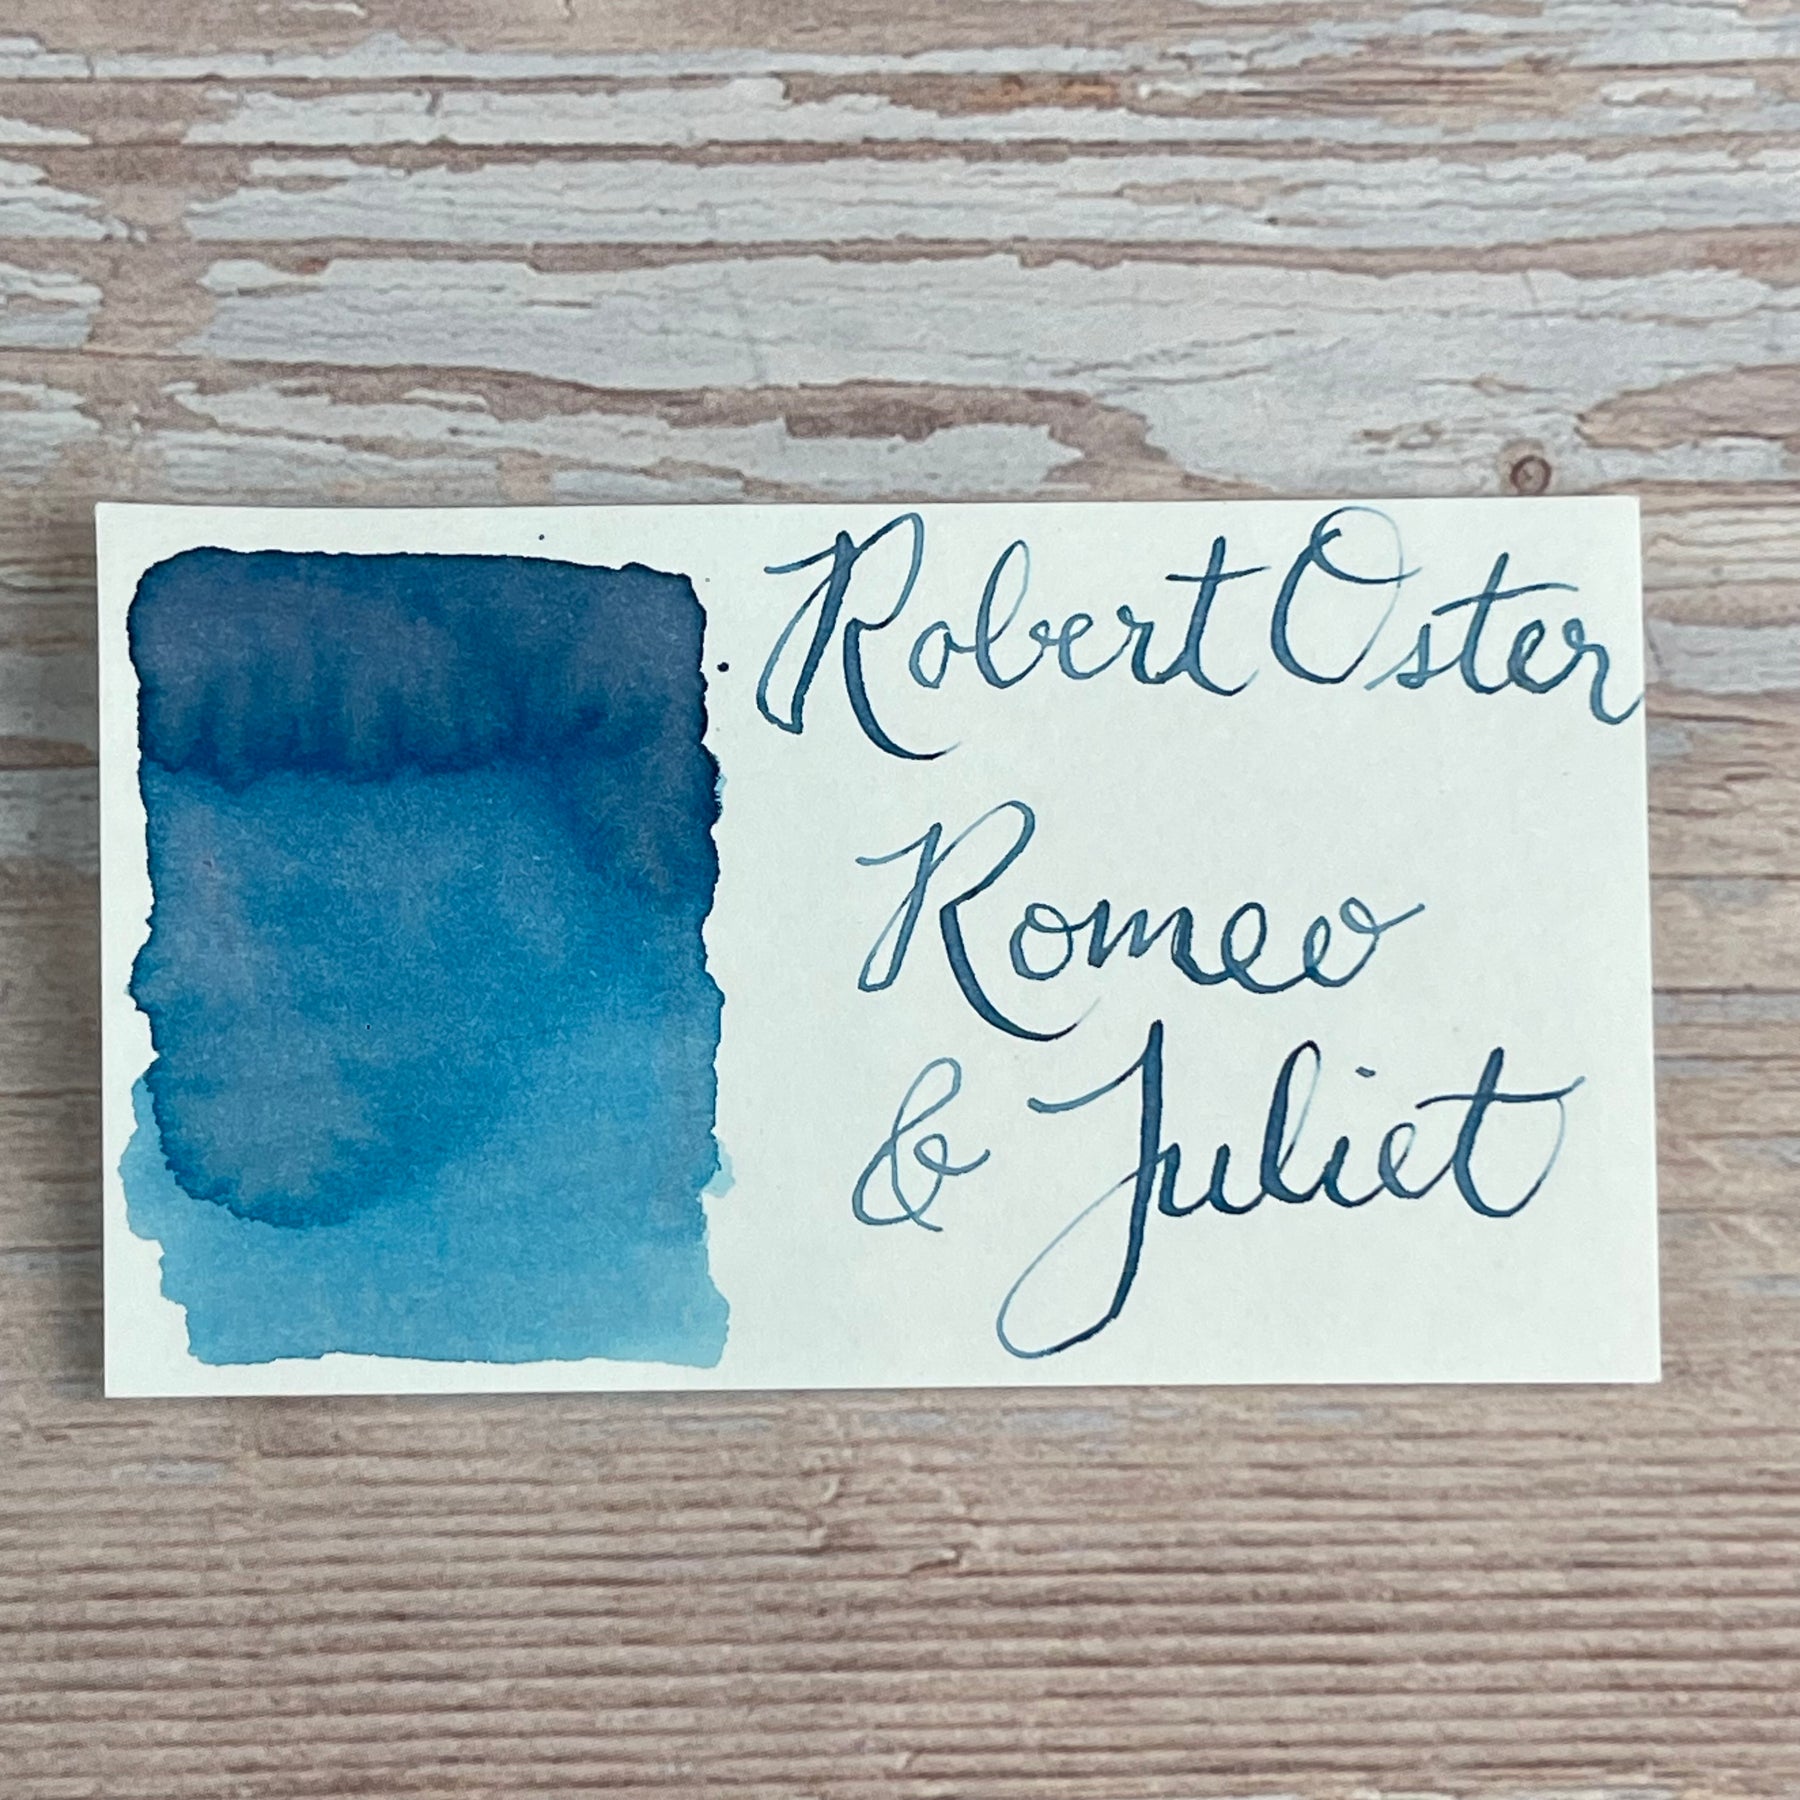 Robert Oster
Romeo
& Juliet